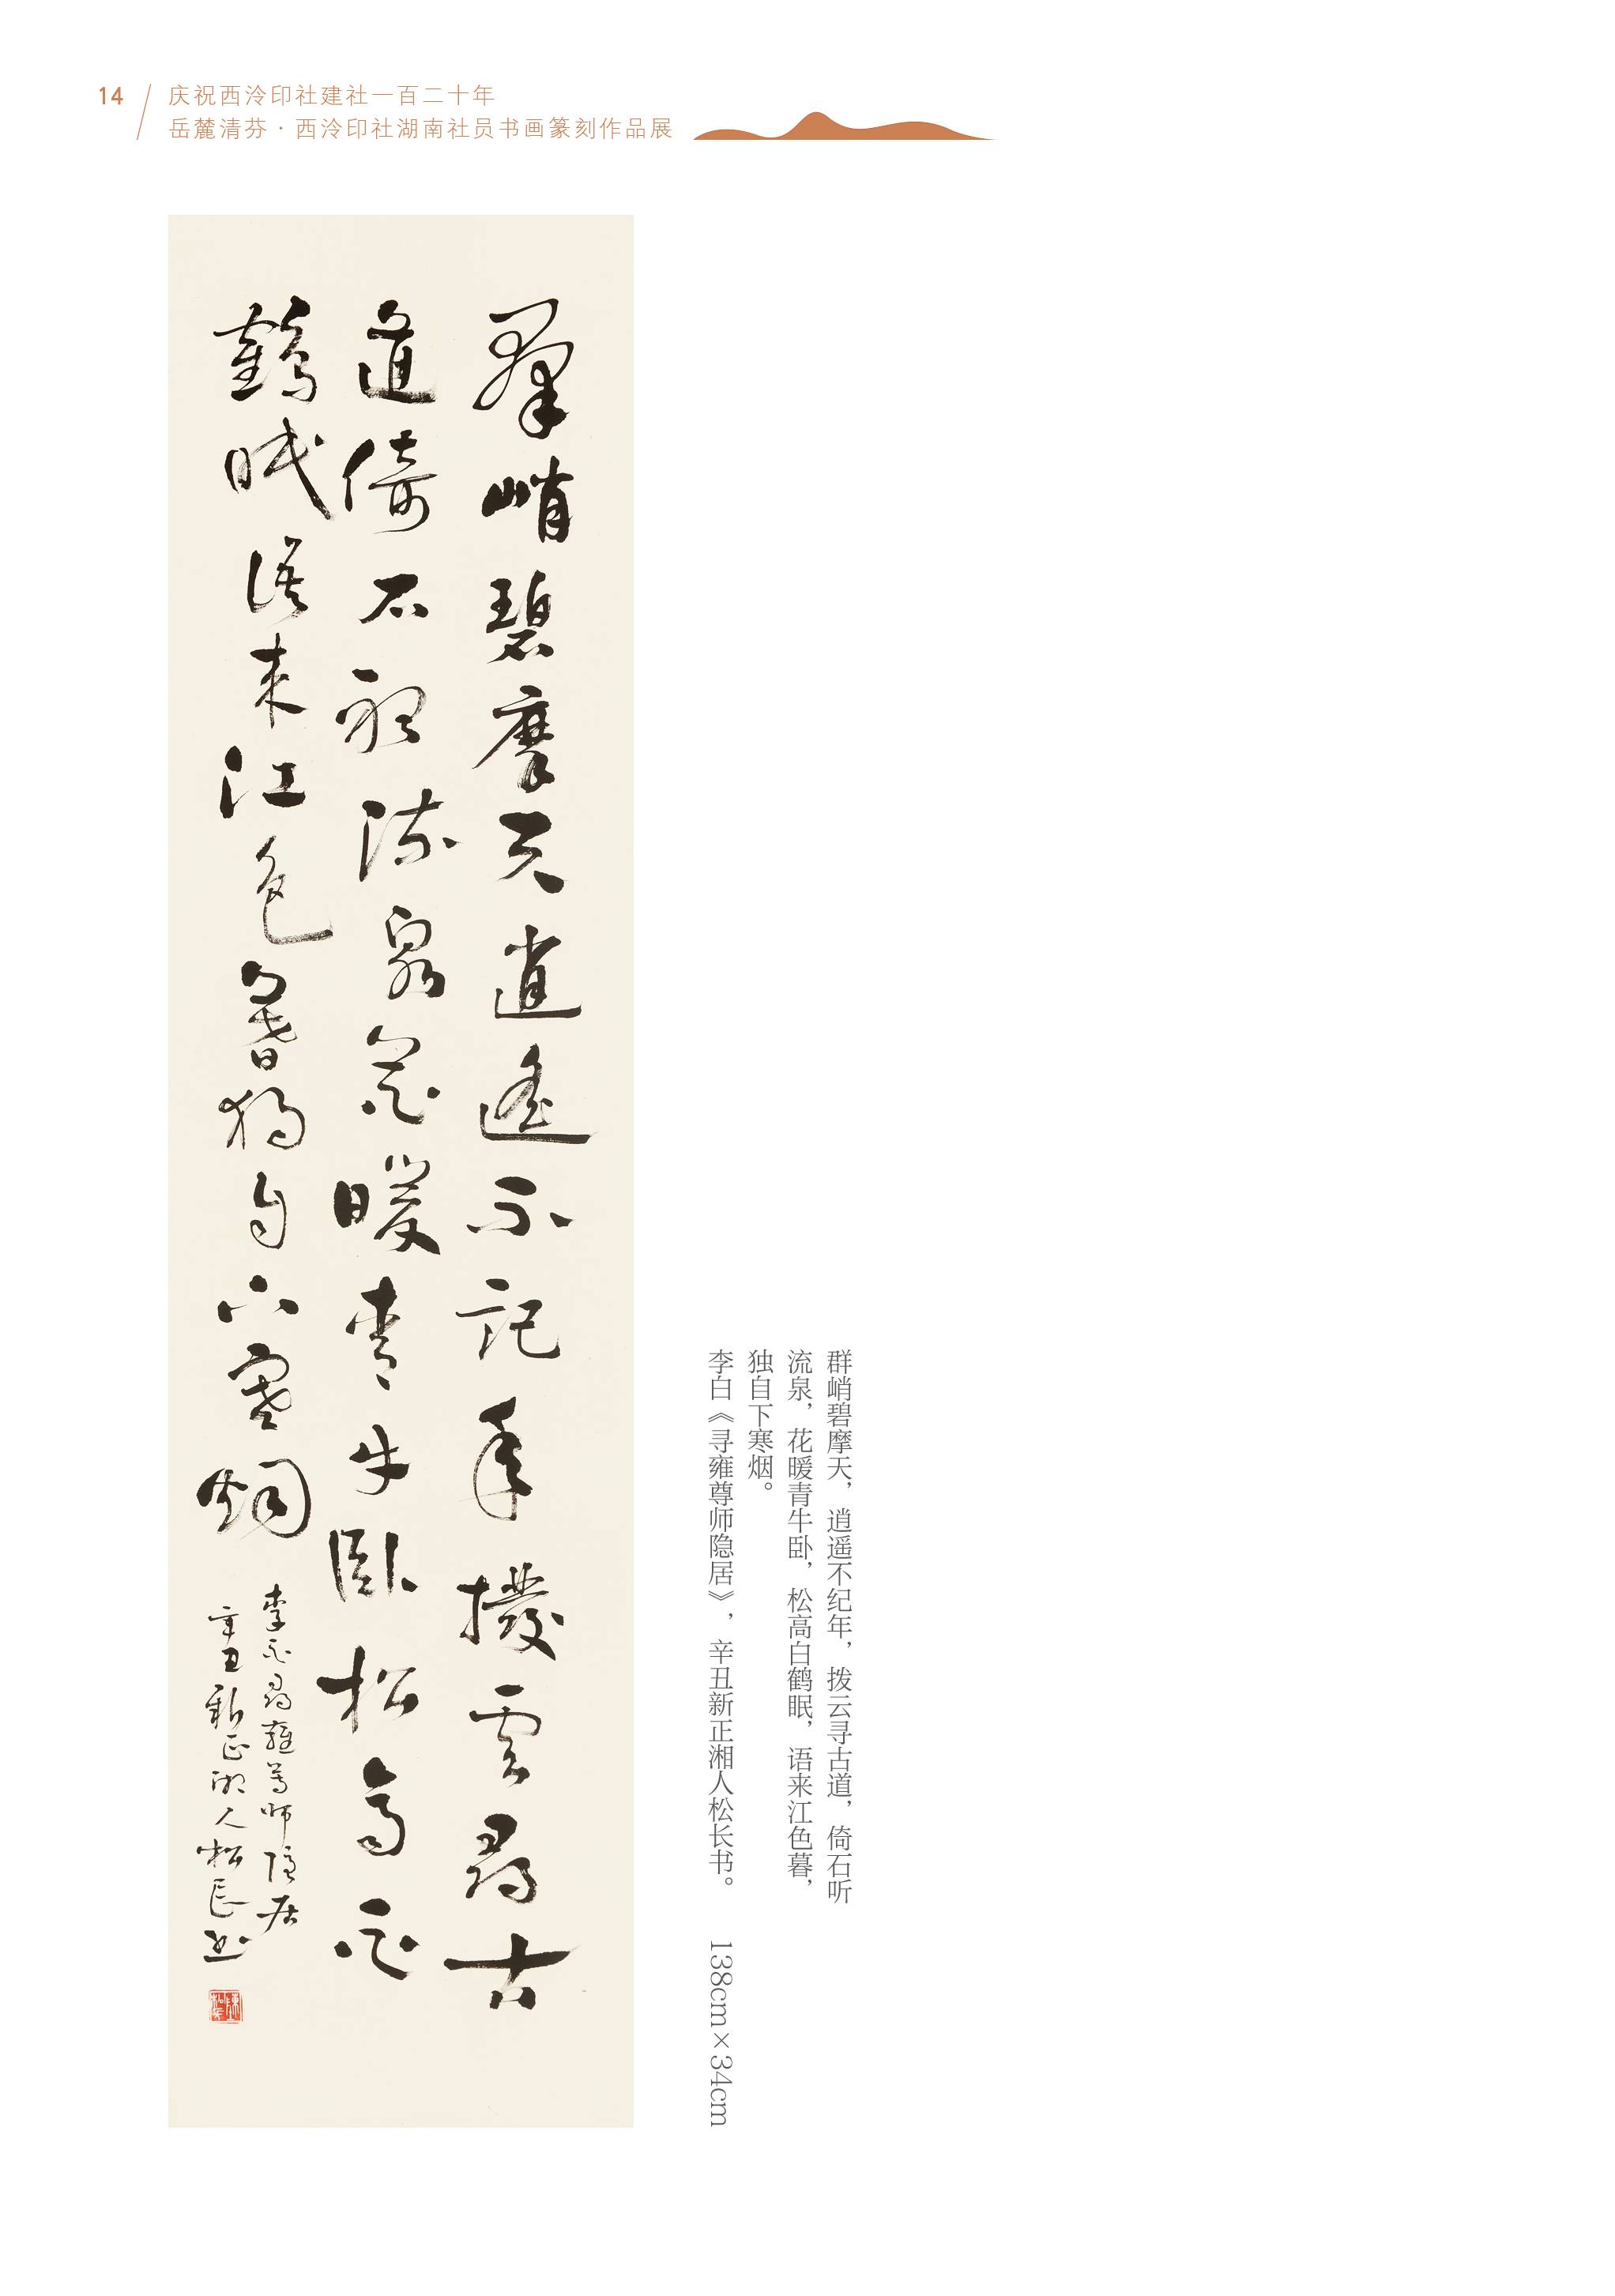 14
庆祝西泠印社建社一百二十年
岳麓清芬·西泠印社湖南社员书画篆刻作品展
羣峭碧摩天逍遙不記年撥雲尋古
道倚石聽流泉花暖青牛臥松高白
鶴眠語來江色暮獨自下寒烟
李白尋雍尊師隱居
辛丑新正湘人松長書
群峭碧摩天，逍遥不纪年，拨云寻古道，倚石听
流泉，花暖青牛卧，松高白鹤眠，语来江色暮，
独自下寒烟。
李白《寻雍尊师隐居》，辛丑新正湘人松长书。 138cm×34cm